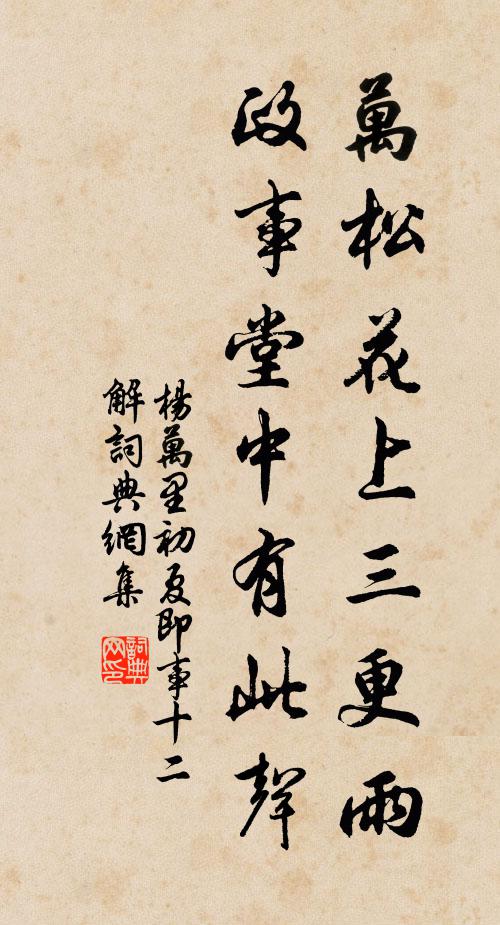 萬松花上三更雨
政事堂中有此聲
楊萬里初夏即事十二
解詞典網集
詞典
网印